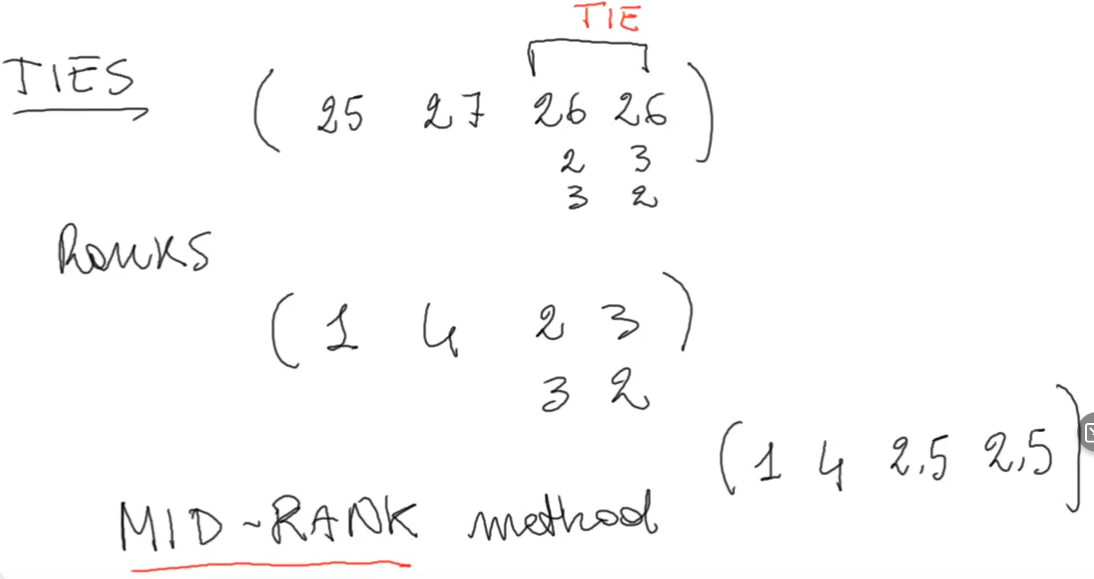 TIE
TIES
( 25 27 26 26 )
2 3
3 2
Ranks
( 1 4 2 3 )
3 2
( 1 4 2,5 2,5 )
MID-RANK method